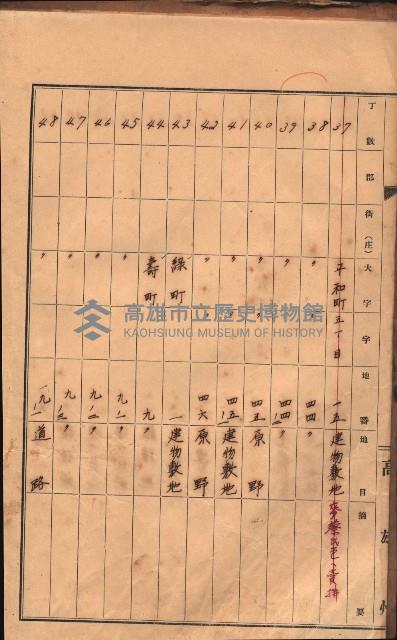 丁數 郡 街(庄) 大字 字 地番 地目 摘要
37 平和町五丁目 一五 建物敷地
38 〃 四四 〃
39 〃 四四ノ一 〃
40 〃 四五 原野
41 〃 四五ノ一 建物敷地
42 〃 四六 原野
43 綠町 一 建物敷地
44 壽町 九 〃
45 〃 九ノ一 〃
46 〃 九ノ二 〃
47 〃 九ノ三 〃
48 〃 一九ノ一 道路
高雄州
高雄市立歷史博物館
KAOHSIUNG MUSEUM OF HISTORY